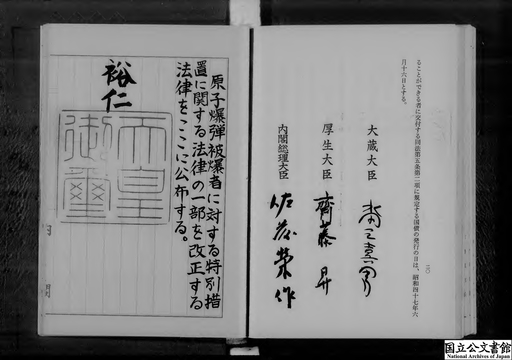 ることができる者に交付する同法第五条第二項に規定する国債の発行の日は、昭和四十七年六
月十六日とする。
一〇
大蔵大臣
厚生大臣 齊藤昇
内閣総理大臣 佐藤榮作
原子爆弾被爆者に対する特別措
置に関する法律の一部を改正する
法律をここに公布する。
裕仁
天皇
御璽
国立公文書館
National Archives of Japan